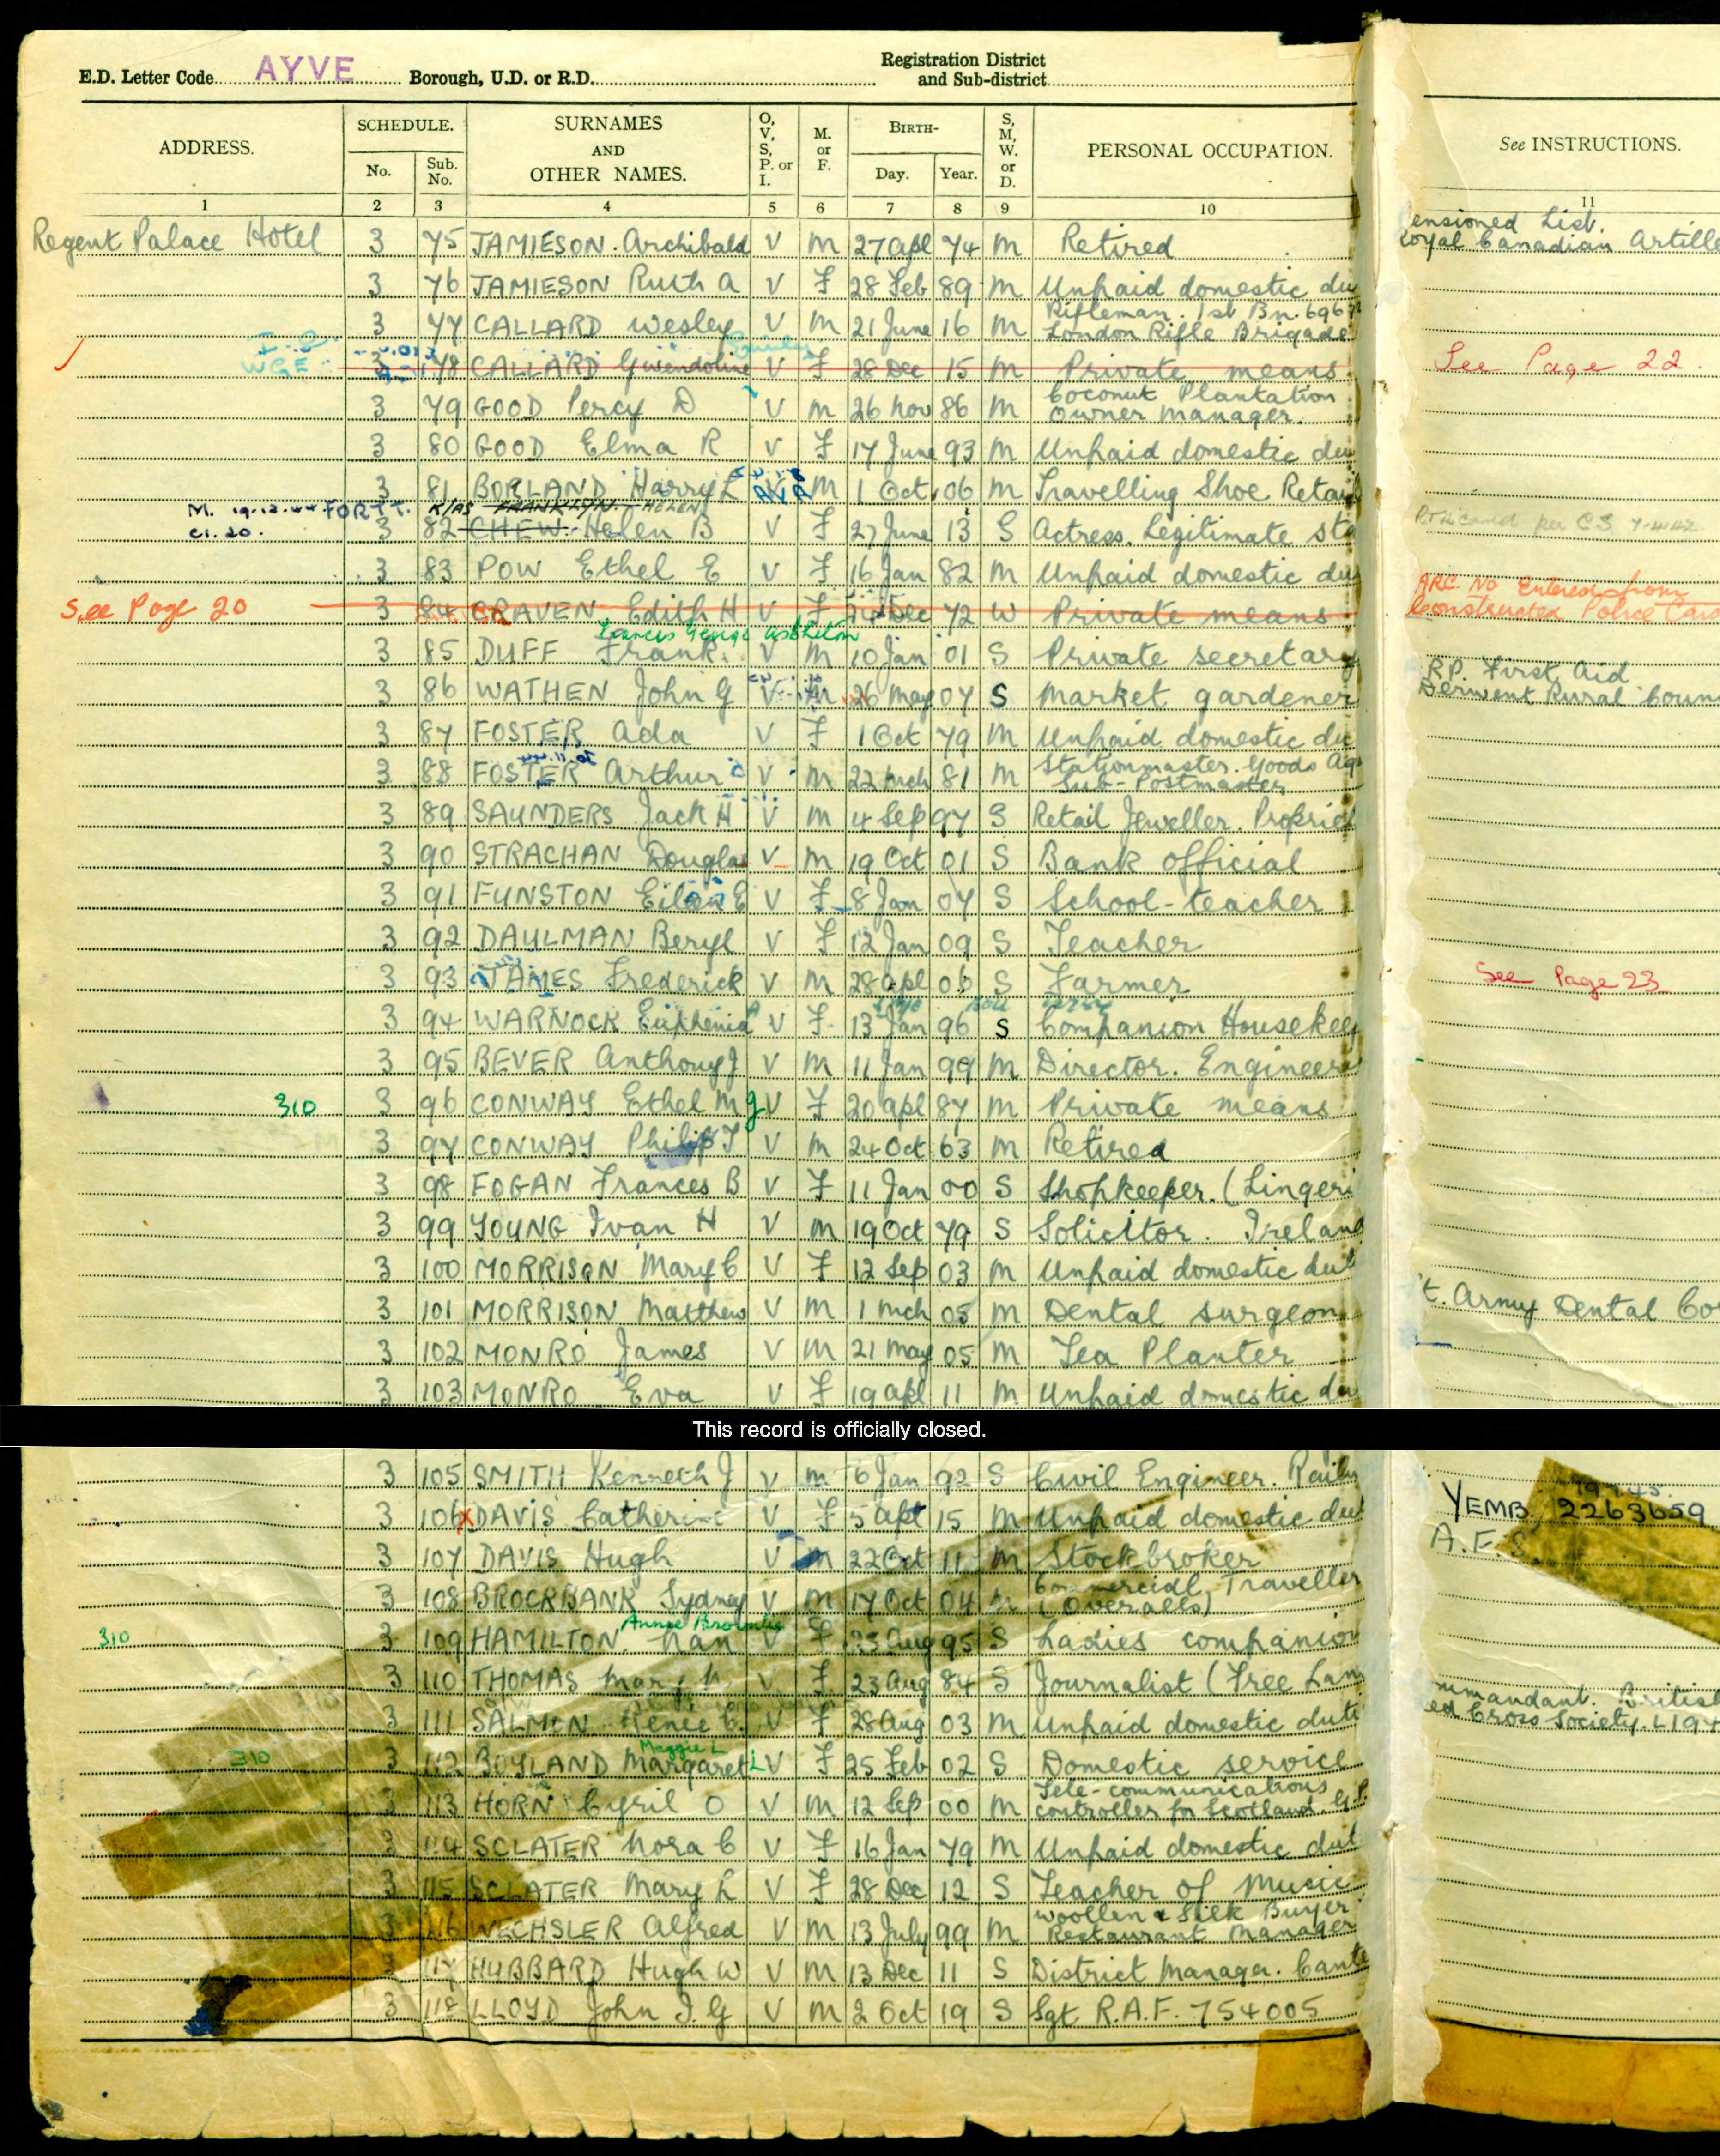 E.D. Letter Code AYVE Borough, U.D. or R.D. Registration District and Sub-district
ADDRESS. SCHEDULE. No. Sub. No. SURNAMES AND OTHER NAMES. O, V, S, P. or I. M. or F. BIRTH- Day. Year. S, M, W. or D. PERSONAL OCCUPATION. See INSTRUCTIONS.
1 2 3 4 5 6 7 8 9 10 11
Regent Palace Hotel 3 75 JAMIESON. Archibald V M 27 Apl 74 M Retired ensioned List. oyal Canadian Artille
3 76 JAMIESON Ruth A V F 28 Feb 89 M Unpaid domestic du
3 77 CALLARD Wesley V M 21 June 16 M Rifleman. 1st Bn. 696 London Rifle Brigade
WGE 3 78 CALLARD Gwendoline V F 28 Dec 15 M Private means See Page 22.
3 79 GOOD Percy D V M 26 Nov 86 M Coconut Plantation Owner Manager.
3 80 GOOD Elma R V F 17 June 93 M Unpaid domestic du
3 81 BORLAND Harry L V M 1 Oct 06 M Travelling Shoe Retail
M. FORTT. K/AS FRANKLYN. HELEN
C1.20. 3 82 CHEW. Helen B V F 27 June 13 S Actress. Legitimate sta per CS 7-4-42
3 83 POW Ethel E V F 16 Jan 82 M Unpaid domestic du
See Page 20 3 84 CRAVEN Edith H V F Dec 72 W Private means ARC No Entered from Constructed Police Card
Francis George Ashelton
3 85 DUFF Frank. V M 10 Jan 01 S Private secretary
3 86 WATHEN John G V M 26 May 07 S Market gardener RP. First Aid Derwent Rural Coun
3 87 FOSTER Ada V F 1 Oct 79 M Unpaid domestic du
3 88 FOSTER Arthur C V M 22 Mch 81 M Stationmaster. Goods Ag Sub-Postmaster
3 89 SAUNDERS Jack H V M 4 Sep 97 S Retail Jeweller. Propriet
3 90 STRACHAN Douglas V M 19 Oct 01 S Bank official
3 91 FUNSTON Eileen E V F 8 Jan 07 S School-teacher
3 92 DAULMAN Beryl V F 12 Jan 09 S Teacher
3 93 JAMES Frederick V M 28 Apl 06 S Farmer See Page 23
3 94 WARNOCK Euphenia V F 13 Jan 96 S Companion Housekeep
3 95 BEVER Anthony J V M 11 Jan 99 M Director. Engineer
310 3 96 CONWAY Ethel M G V F 20 Apl 87 M Private means
3 97 CONWAY Philip T V M 24 Oct 63 M Retired
3 98 FOGAN Frances B V F 11 Jan 00 S Shopkeeper. (Lingeri
3 99 YOUNG Ivan H V M 19 Oct 79 S Solicitor. Ireland
3 100 MORRISON Mary C V F 12 Sep 03 M Unpaid domestic dut
3 101 MORRISON Matthew V M 1 Mch 05 M Dental surgeon t. Army Dental Cor
3 102 MONRO James V M 21 May 05 M Tea Planter
3 103 MONRO Eva V F 19 Apl 11 M Unpaid domestic du
This record is officially closed.
3 105 SMITH Kenneth J V M 6 Jan 92 S Civil Engineer. Railw
3 106 X DAVIS Catherine V F 5 Apl 15 M Unpaid domestic dut YEMB. 2263659
3 107 DAVIS Hugh V M 22 Oct 11 M Stockbroker A.F.S.
3 108 BROCKBANK Sydney V M 17 Oct 04 M Commercial Traveller (Overalls)
310 Annie Brownlie
3 109 HAMILTON. Nan V F 23 Aug 95 S Ladies companion
3 110 THOMAS Mary M V F 23 Aug 84 S Journalist (Free Lan
3 111 SALMON Renee C. V F 28 Aug 03 M Unpaid domestic duti mmandant. British ed Cross Society. L194
Maggie L
310 3 112 BOYLAND Margaret L V F 25 Feb 02 S Domestic service
3 113 HORN Cyril O V M 12 Sep 00 M Tele-communications controller for Scotland. G.P.
3 114 SCLATER Nora C V F 16 Jan 79 M Unpaid domestic dut
3 115 SCLATER Mary L V F 28 Dec 12 S Teacher of Music
3 116 WECHSLER Alfred V M 13 July 99 M Woollen & Silk Buyer Restaurant Manager
3 117 HUBBARD Hugh W V M 13 Dec 11 S District Manager. Cante
3 118 LLOYD John I. G V M 2 Oct 19 S Sgt. R.A.F. 754005